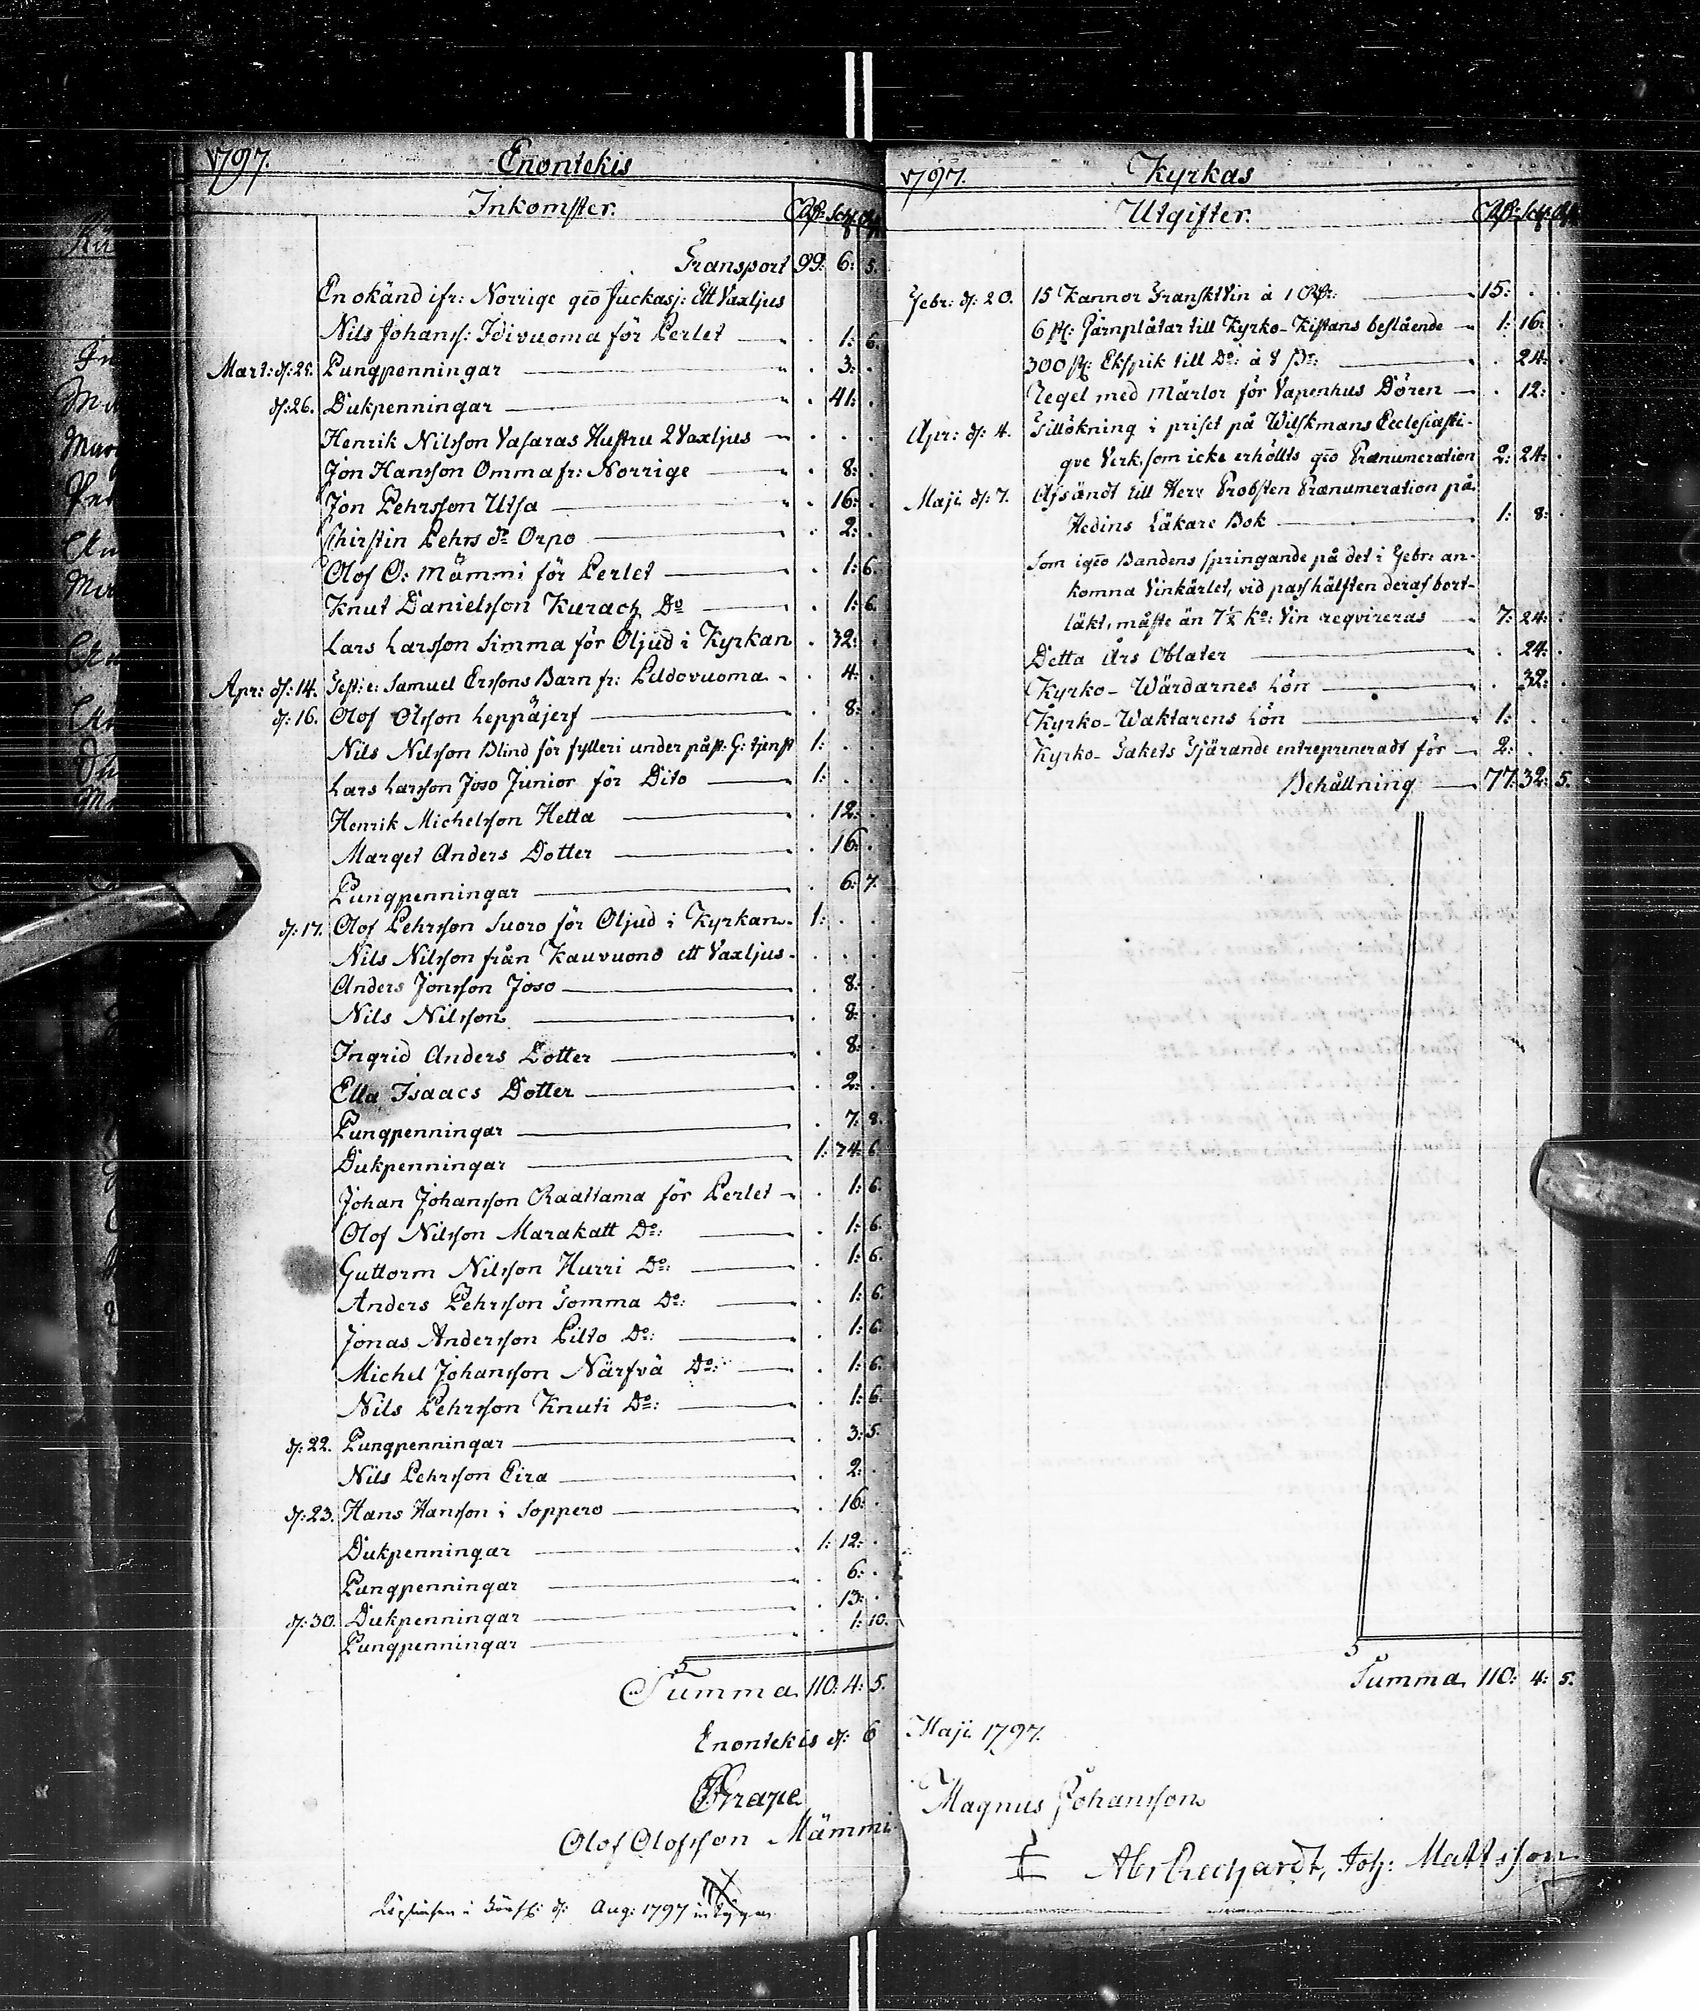 1797. Enontekis
Inkomster. Rdr: Sch: rst:
Transport 99: 6: 5.
En okänd ifr: Norrige gēō Juckasj: Ett Vaxljus
Nils Johanss: Idivuoma för Perlet . 1: 6.
Mart: d: 25. Pungpenningar . 3: .
d: 26. Dukpenningar . 41: .
Henrik Nilsson Vasaras Hustru 2 Vaxljus . . .
Jon Hansson Omma fr: Norrige . 8: .
Jon Pehrsson Utsa . 16: .
Chirstin Pehrs dr Orpo . 2: .
Olof O: Mämmi för Perlet . 1: 6.
Knut Danielsson Kuracz Do . 1: 6.
Lars Larsson Simma för Oljud i Kyrkan . 32: .
Apr: d: 14. Test: e: Samuel Erssons Barn fr: Lildovuoma . 4: .
d: 16. Olof Olsson Leppäjerf . 8: .
Nils Nilsson Blind för fylleri under påst: G: tjenst 1: . .
Lars Larsson Joso Junior för Dito 1: . .
Henrik Michelsson Hetta . 12: .
Marget Anders Dotter . 16: .
Pungpenningar . 6: 7.
d: 17. Olof Pehrsson Suoro för Oljud i Kyrkan 1: . .
Nils Nilsson från Kauvuono ett Vaxljus . . .
Anders Jonsson Joso . 8: .
Nils Nilsson . 8: .
Ingrid Anders Dotter . 8: .
Ella Isaacs Dotter . 2: .
Pungpenningar . 7: 8.
Dukpenningar 1: 24: 6.
Johan Johansson Raattama för Perlet . 1: 6.
Olof Nilsson Marakatt Do: . 1: 6.
Guttorm Nilsson Hurri Do: . 1: 6.
Anders Pehrsson Tomma Do: . 1: 6.
Jonas Andersson Pilto Do: . 1: 6.
Michel Johansson Närfvä Do: . 1: 6.
Nils Pehrsson Knuti Do: . 1: 6.
d: 22. Pungpenningar . 3: 5.
Nils Pehrsson Eira . 2: .
d: 23. Hans Hansson i Soppero . 16: .
Dukpenningar 1: 12: .
Pungpenningar . 6: .
d: 30. Dukpenningar . 13: .
Pungpenningar . 1: 10.
Summa 110: 4: 5.
Enontekis d: 6
Grape
Olof Olofsson Mämmi
Aug: 1797
1797. Kyrkas
Utgifter. Rdr: Sch: rst:
Febr: d: 20. 15 Kannor Franskt Vin à 1 Rdr: 15: . .
6 st: Järnplåtar till Kyrko-Kistans beslående 1: 16: .
300 st: Ekspik till Do: à 8 . 24: .
Regel med Märlor för Vapenhus Dören . 12: .
Apr: d: 4. Tillökning i priset på Wilskmans Ecclesiasti-
qve Verk, som icke erhöllts gēō Prænumeration 2: 24: .
Maji d: 7. Afsändt till Herr Probsten Prænumeration på
Hedins Läkare Bok 1: 8: .
Som igēō Bandens springande på det i Febr: an-
komna Vinkärlet, vid pass hälften deraf bort-
läkt, måste än 7 1/2 Ko: Vin reqvireras 7: 24: .
Detta Års Oblater . 24: .
Kyrko-Wärdarnes Lön . 32: .
Kyrko-Waktarens Lön 1: . .
Kyrko-Takets Tjärande entrepreneradt för 2: . .
Behållning 77: 32: 5.
Summa 110: 4: 5.
Maji 1797.
Magnus Johansson
Joh: Mattsson